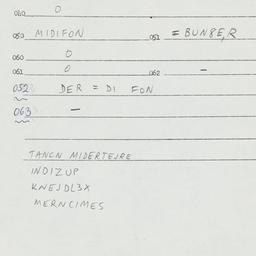 040 0
050 MIDIFON 051 = BUN8E,R
060 0
061 0 062 –
052 DER = DI FON
063 –
TANCN MIDERTEJRE
INDIZUP
KNEJDL3X
MERNCIMES